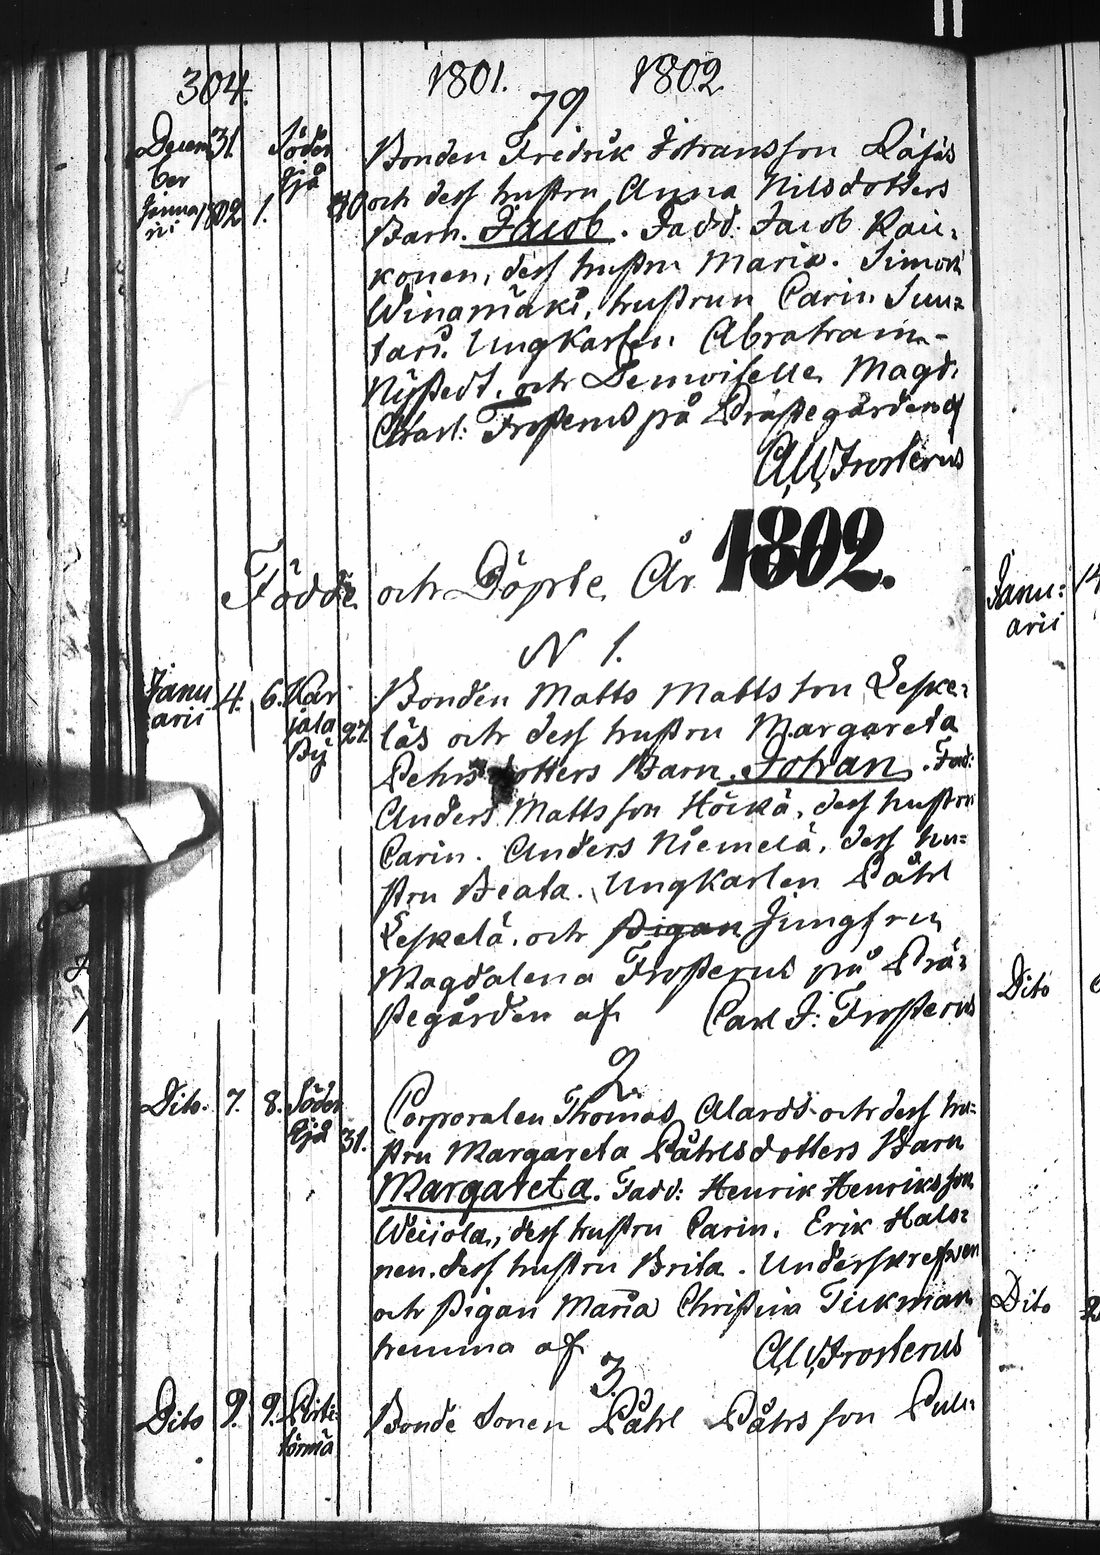 304.
1801. 1802
79
Decem 31. Söder
ber Sjå
Januarii 1802 1. 30
Bonden Fredrik Johansson
och dess hustru Anna Nilsdotters
Barn. Jacob. Fadd. Jacob Kau:
konen, dess hustru Maria. Simon
Winamäki, hustrun Carin Juu:
tari. Ungkarlen Abraham
Nystedt, och Demoiselle Magd.
Charl: Frosterus på Prästegården af
A, W, Frosterus
Födde och Döpte År 1802.
N 1.
Janu 4. 6. Kar
arii jala 27.
By
Bonden Matts Mattsson Leske:
läs och dess hustru Margareta
Pehrsdotters Barn. Johan. Fad:
Anders Mattsson Höikä, dess hustru
Carin. Anders Niemelä, dess hu:
stru Beata. Ungkarlen Påhl
Leskelä. och Pigan Jungfru
Magdalena Frosterus på Prä:
stegården af Carl J: Frosterus
2.
Dito. 7. 8. Söder
Sjå 31.
Corporalen Thomas Alards och dess hu:
stru Margareta Påhlsdotters Barn
Margareta. Fadd: Henrik Henriksson
Weijola, dess hustru Carin. Erik Halo:
nen. dess hustru Brita. Underskrefwen
och Pigan Maria Christina Tickman
hemma af A, W, Frosterus
3.
Dito 9. 9.
Bonde Sonen Påhl Påhlsson Puli:
Janu: 14
arii
Dito
Dito